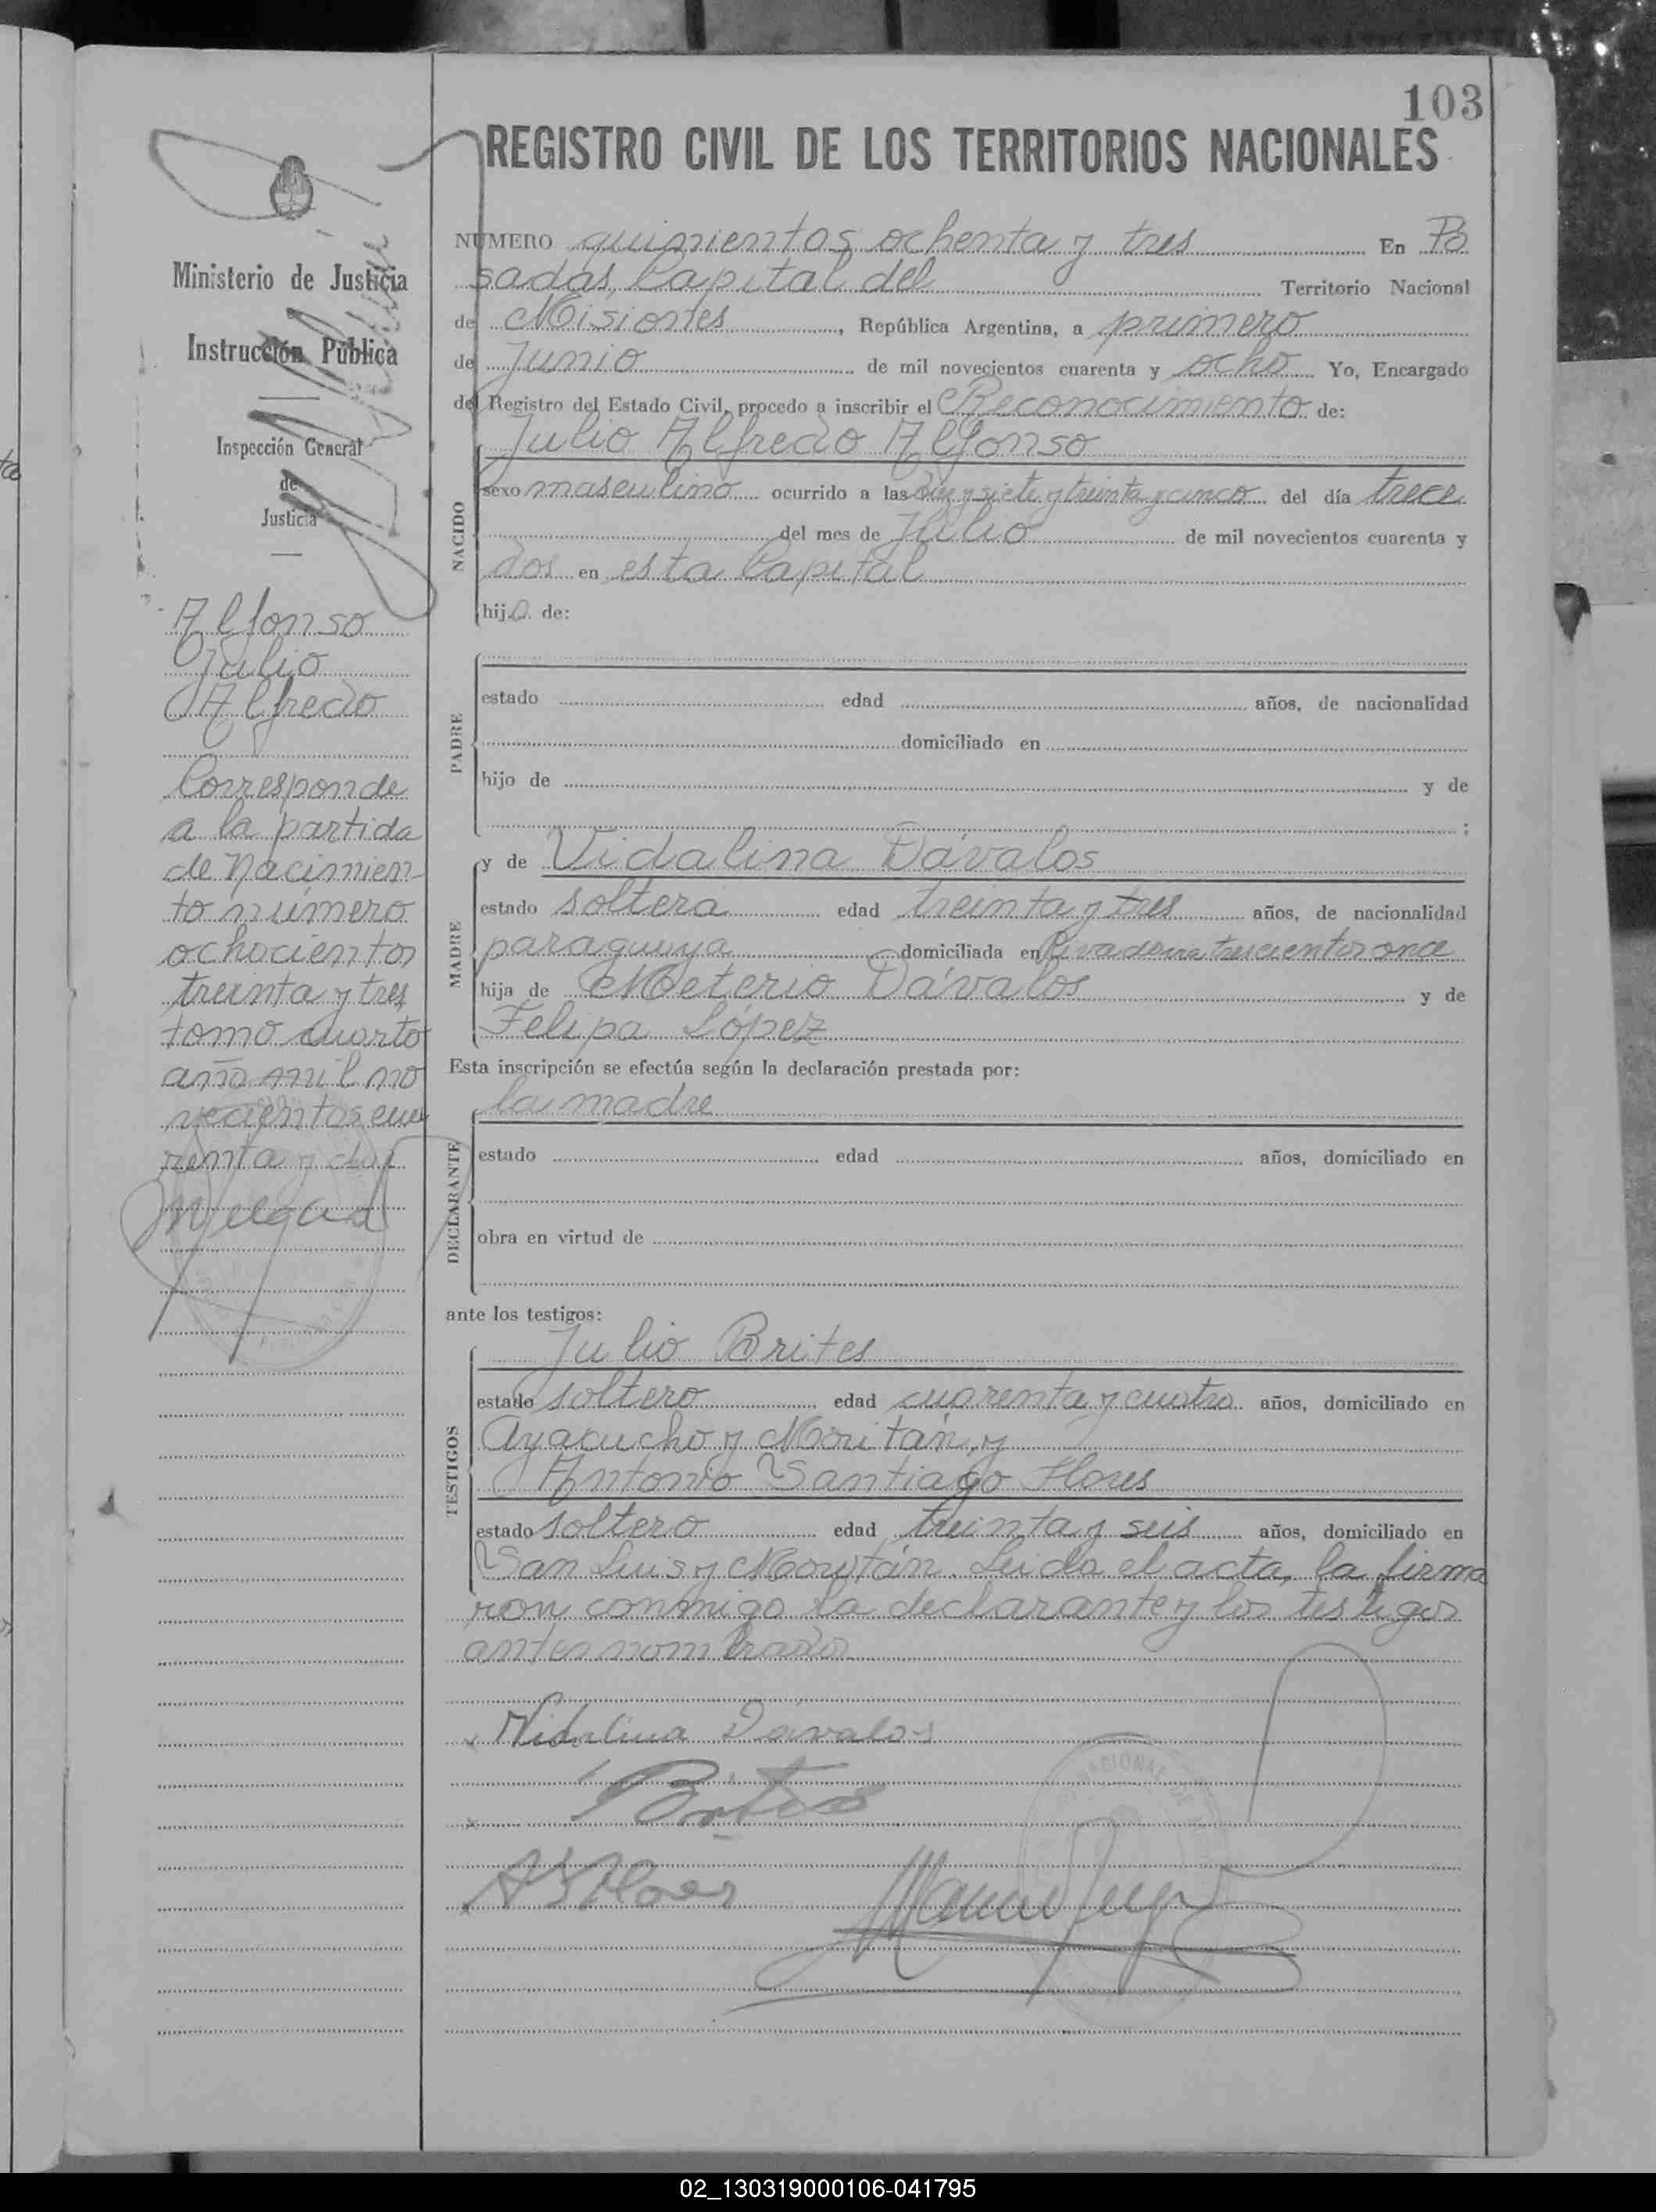 103
REGISTRO CIVIL DE LOS TERRITORIOS NACIONALES
Ministerio de Justicia
Instrucción Pública
Inspección General
de
Justicia
Alfonso
Julio
Alfredo
Corresponde
a la partida
de Nacimien-
to número
ochocientos
treinta y tres
tomo cuarto
año mil no
vecientos cua
renta y dos
NUMERO quinientos ochenta y tres En Po
sadas, Capital del Territorio Nacional
de Misiones, República Argentina, a primero
de Junio de mil novecientos cuarenta y ocho Yo, Encargado
del Registro del Estado Civil, procedo a inscribir el Reconocimiento de:
Julio Alfredo Alfonso
NACIDO
sexo masculino ocurrido a las diez y siete y treinta y cinco del día trece
del mes de Julio de mil novecientos cuarenta y
dos en esta Capital
hijo de:
PADRE
estado edad años, de nacionalidad
domiciliado en
hijo de y de
;
MADRE
y de Vidalina Dávalos
estado soltera edad treinta y tres años, de nacionalidad
paraguaya domiciliada en Rivadavia trescientos once
hija de Meterio Dávalos y de
Felipa López
Esta inscripción se efectúa según la declaración prestada por:
la madre
DECLARANTE
estado edad años, domiciliado en
obra en virtud de
ante los testigos:
Julio Brites
TESTIGOS
estado soltero edad cuarenta y cuatro años, domiciliado en
Ayacucho y Moritán, y
Antonio Santiago Flores
estado soltero edad treinta y seis años, domiciliado en
San Luis y Moritán. Leida el acta, la firma
ron conmigo la declarante y los testigos
antes nombrados
Vidalina Davalos
Brites
ASFlores
02_130319000106-041795